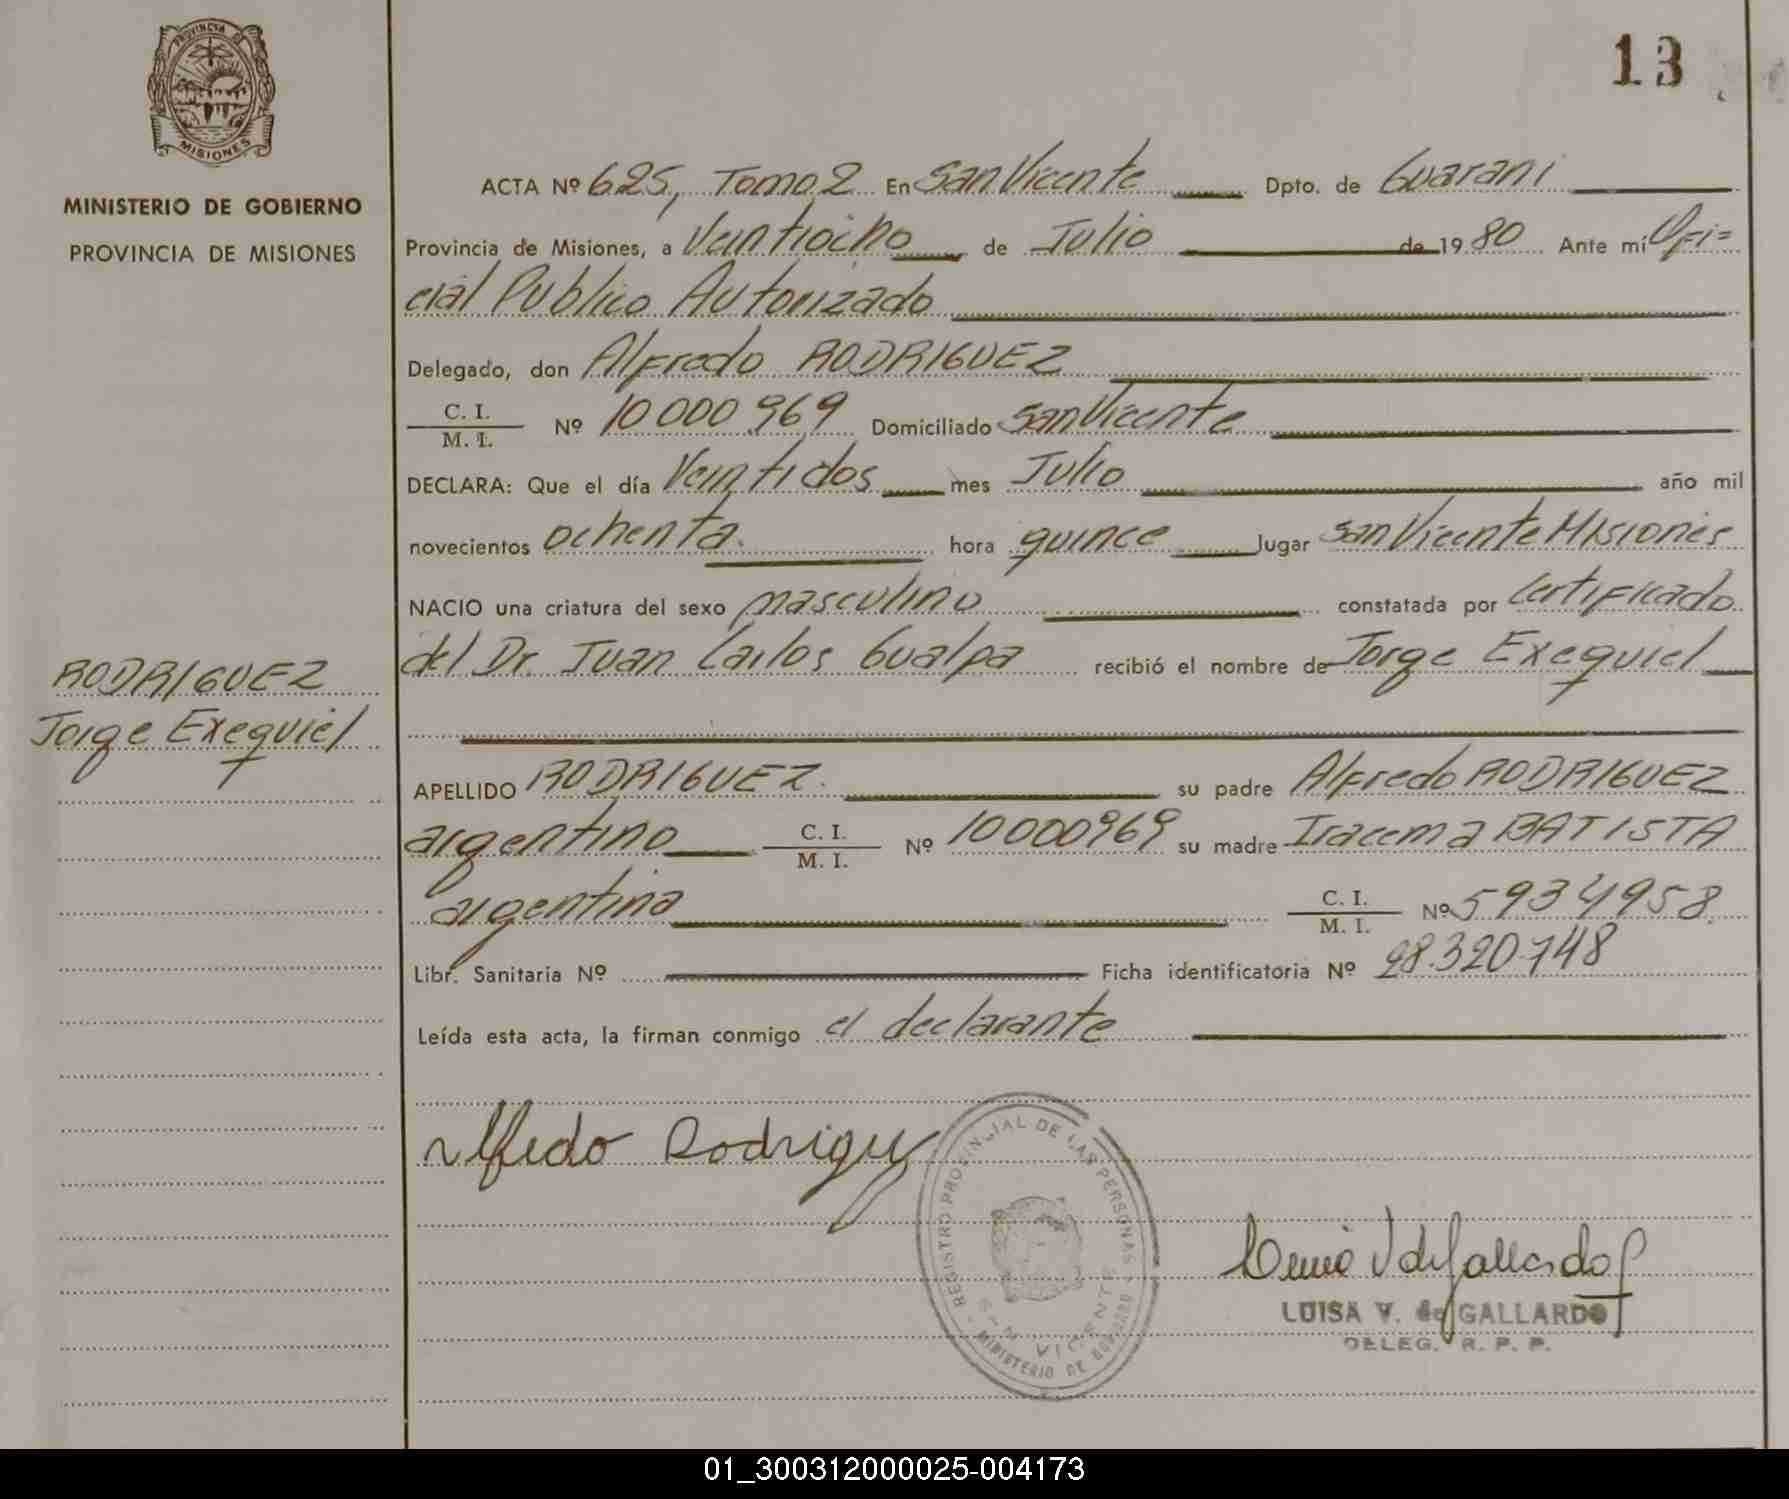 13
PROVINCIA DE
MISIONES
MINISTERIO DE GOBIERNO
PROVINCIA DE MISIONES
ACTA Nº 625, Tomo 2 En San Vicente Dpto. de Guarani
Provincia de Misiones, a Veintiocho de Julio de 1980 Ante mí Ofi=
cial Publico Autorizado
Delegado, don Alfredo RODRIGUEZ
C. I.
M. I. Nº 10000.969 Domiciliado San Vicente
DECLARA: Que el día Veintidos mes Julio año mil
novecientos ochenta. hora quince lugar San Vicente Misiones
NACIO una criatura del sexo masculino constatada por Certificado
del Dr. Juan Carlos Gualpa recibió el nombre de Jorge Exequiel
RODRIGUEZ
Jorge Exequiel
APELLIDO RODRIGUEZ. su padre Alfredo RODRIGUEZ
argentino C. I.
M. I. Nº 10000969 su madre Iracema BATISTA
argentina C. I.
M. I. Nº 5934958.
Libr. Sanitaria Nº Ficha identificatoria Nº 28.320.748
Leída esta acta, la firman conmigo el declarante
Alfredo Rodriguez
REGISTRO PROVINCIAL DE LAS PERSONAS
SAN VICENTE
MINISTERIO DE GOBIERNO
LUISA V. de GALLARDO
DELEG. R. P. P.
01_300312000025-004173